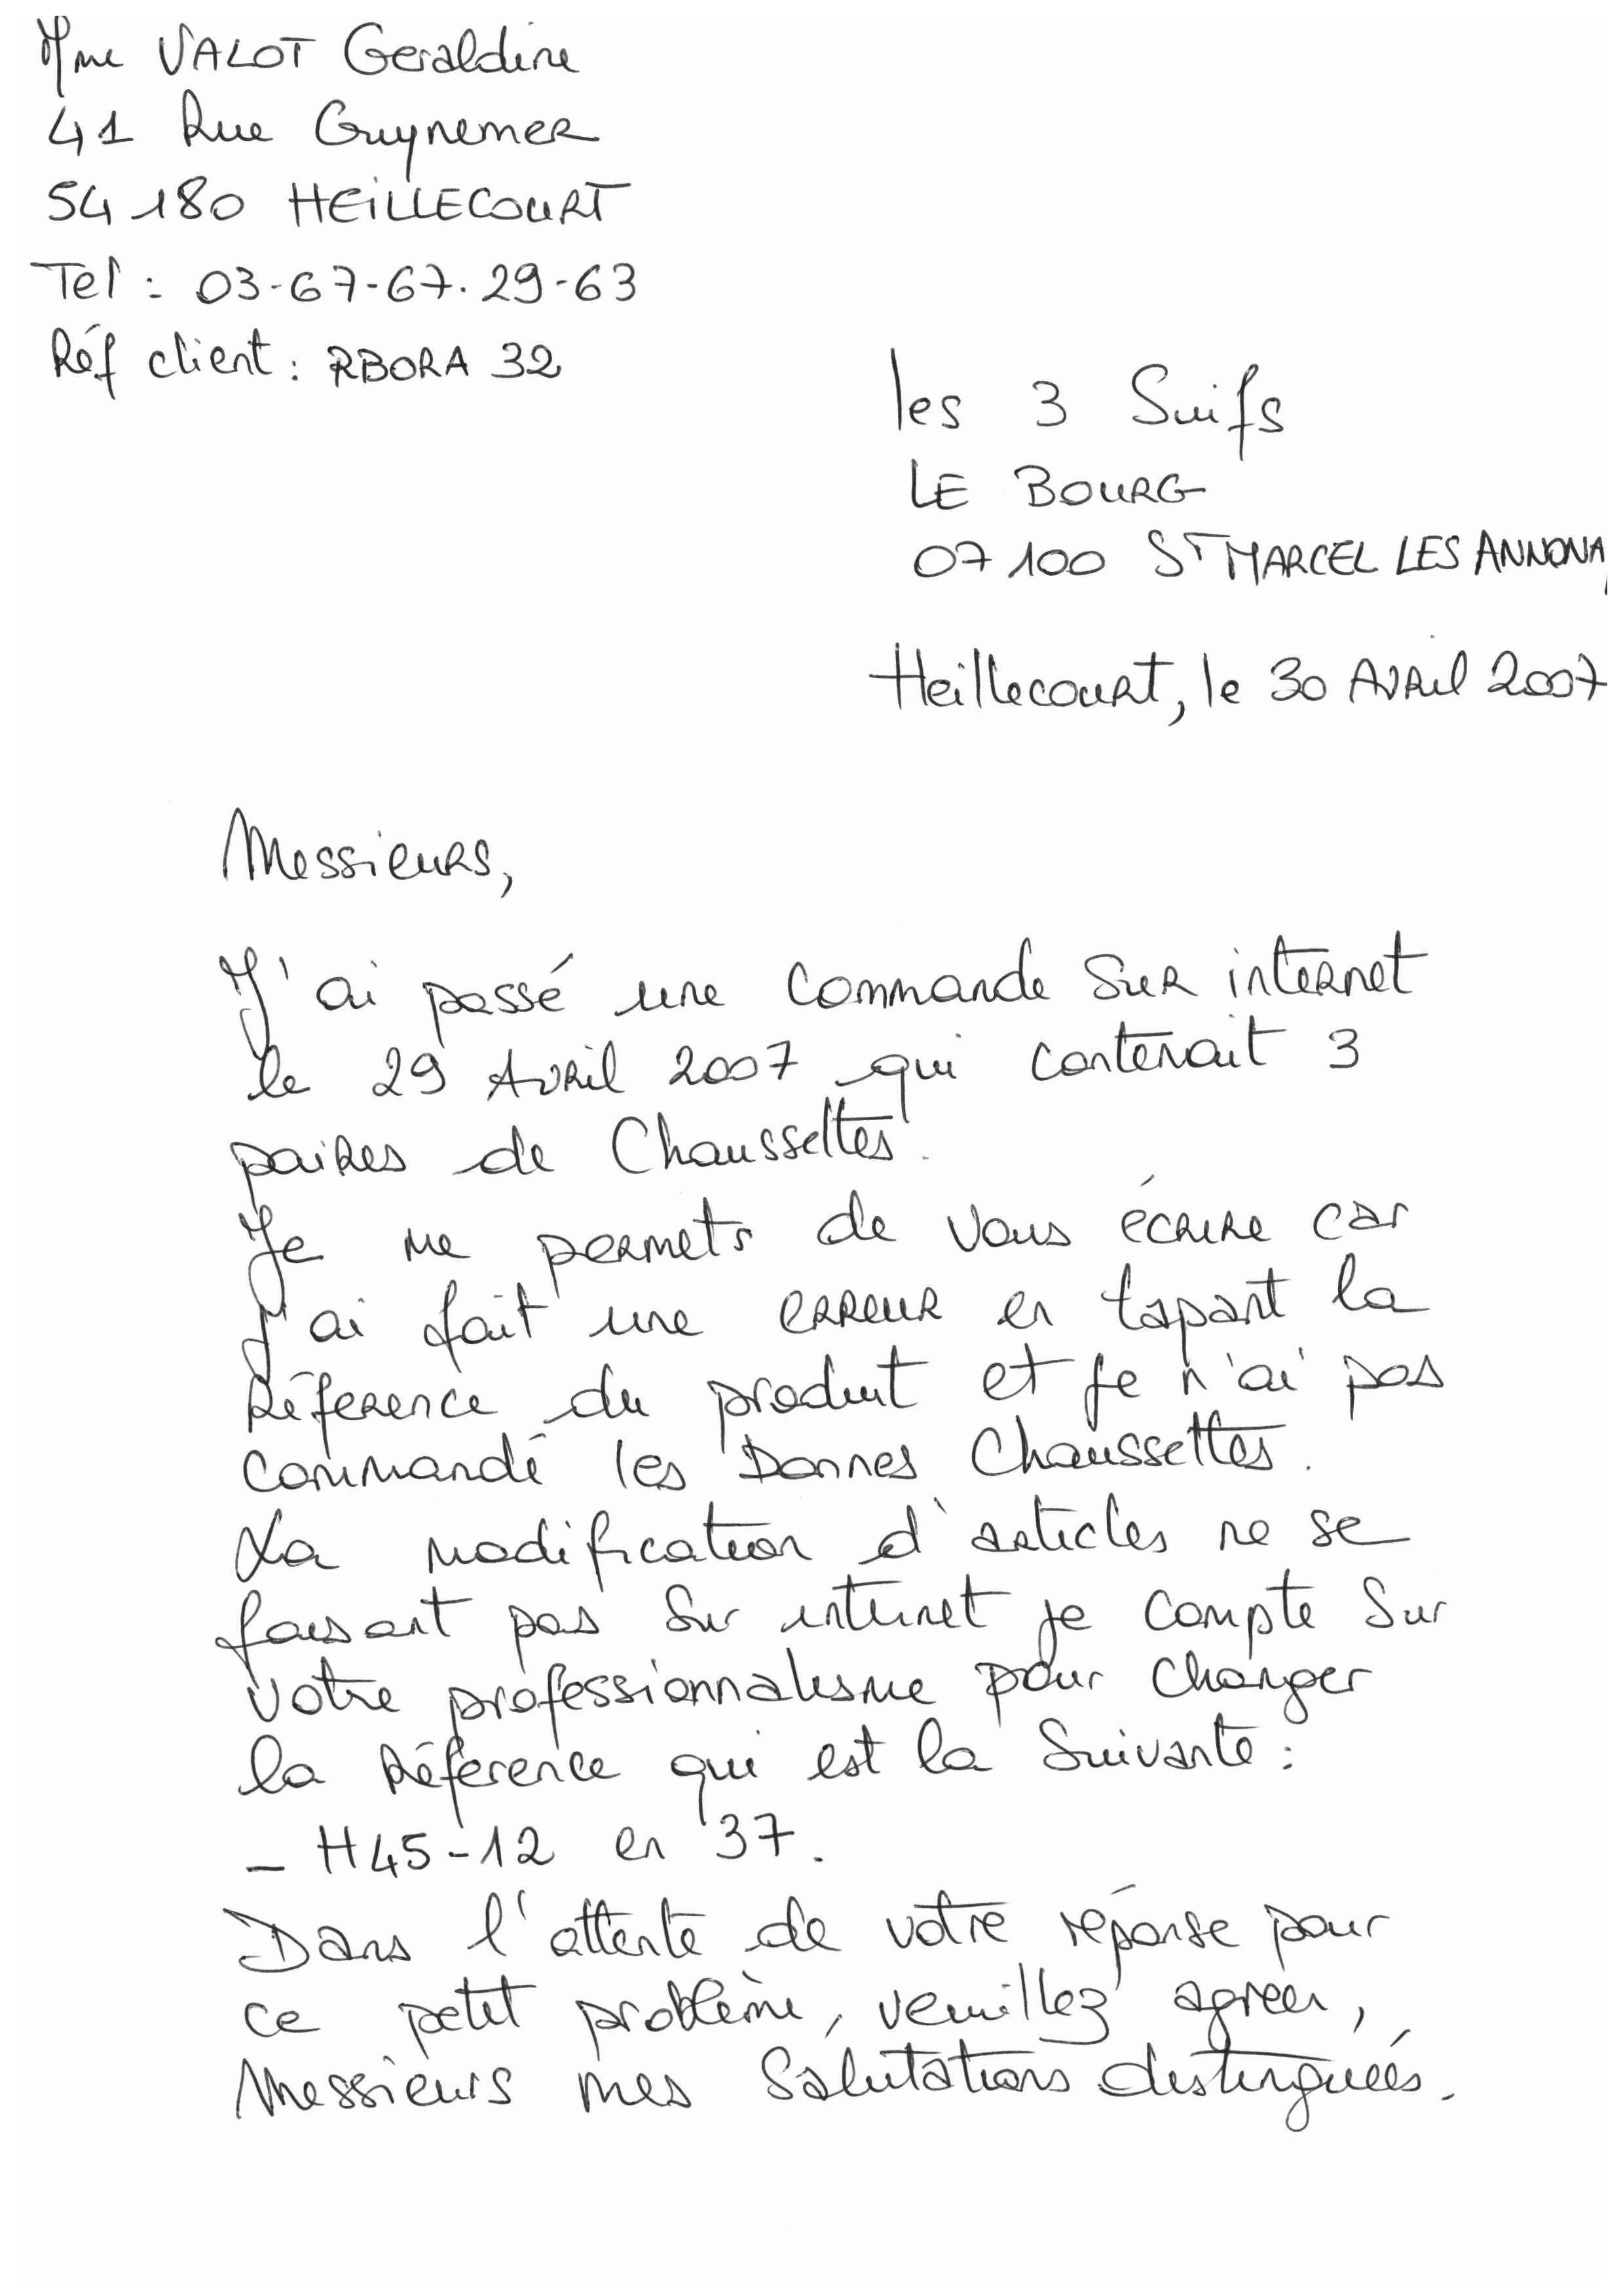 Mme VALOT Geraldine
41 Rue Guynemer
54180 HEILLECOURT
Tel : 03-67-67.29-63
Réf client : RBORA 32
les 3 Suifs
LE BOURG
07100 ST MARCEL LES ANNONA
Heillecourt, le 30 Avril 2007
Messieurs,
J'ai passé une commande sur internet
le 29 Avril 2007 qui contenait 3
paires de Chaussettes.
Je me permets de vous écrire car
j'ai fait une erreur en tapant la
Référence du produit et je n'ai pas
commandé les bonnes Chaussettes.
La modification d'articles ne se
faisant pas sur internet je compte sur
votre professionnalisme pour changer
la Référence qui est la suivante :
- H45-12 en 37.
Dans l'attente de votre réponse pour
ce petit problème, veuillez agréer,
Messieurs mes salutations distinguées.